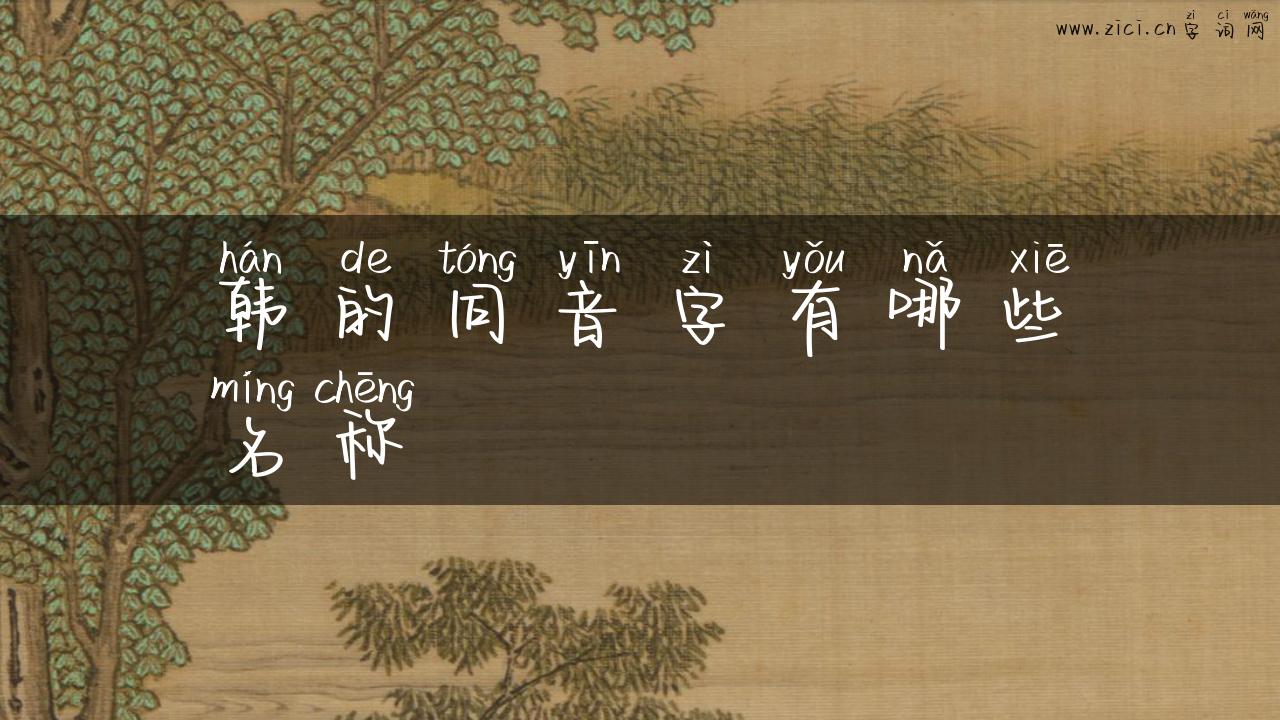 zì cí wǎng
www.zici.cn 字词网
hán de tóng yīn zì yǒu nǎ xiē
韩的同音字有哪些
míng chēng
名称